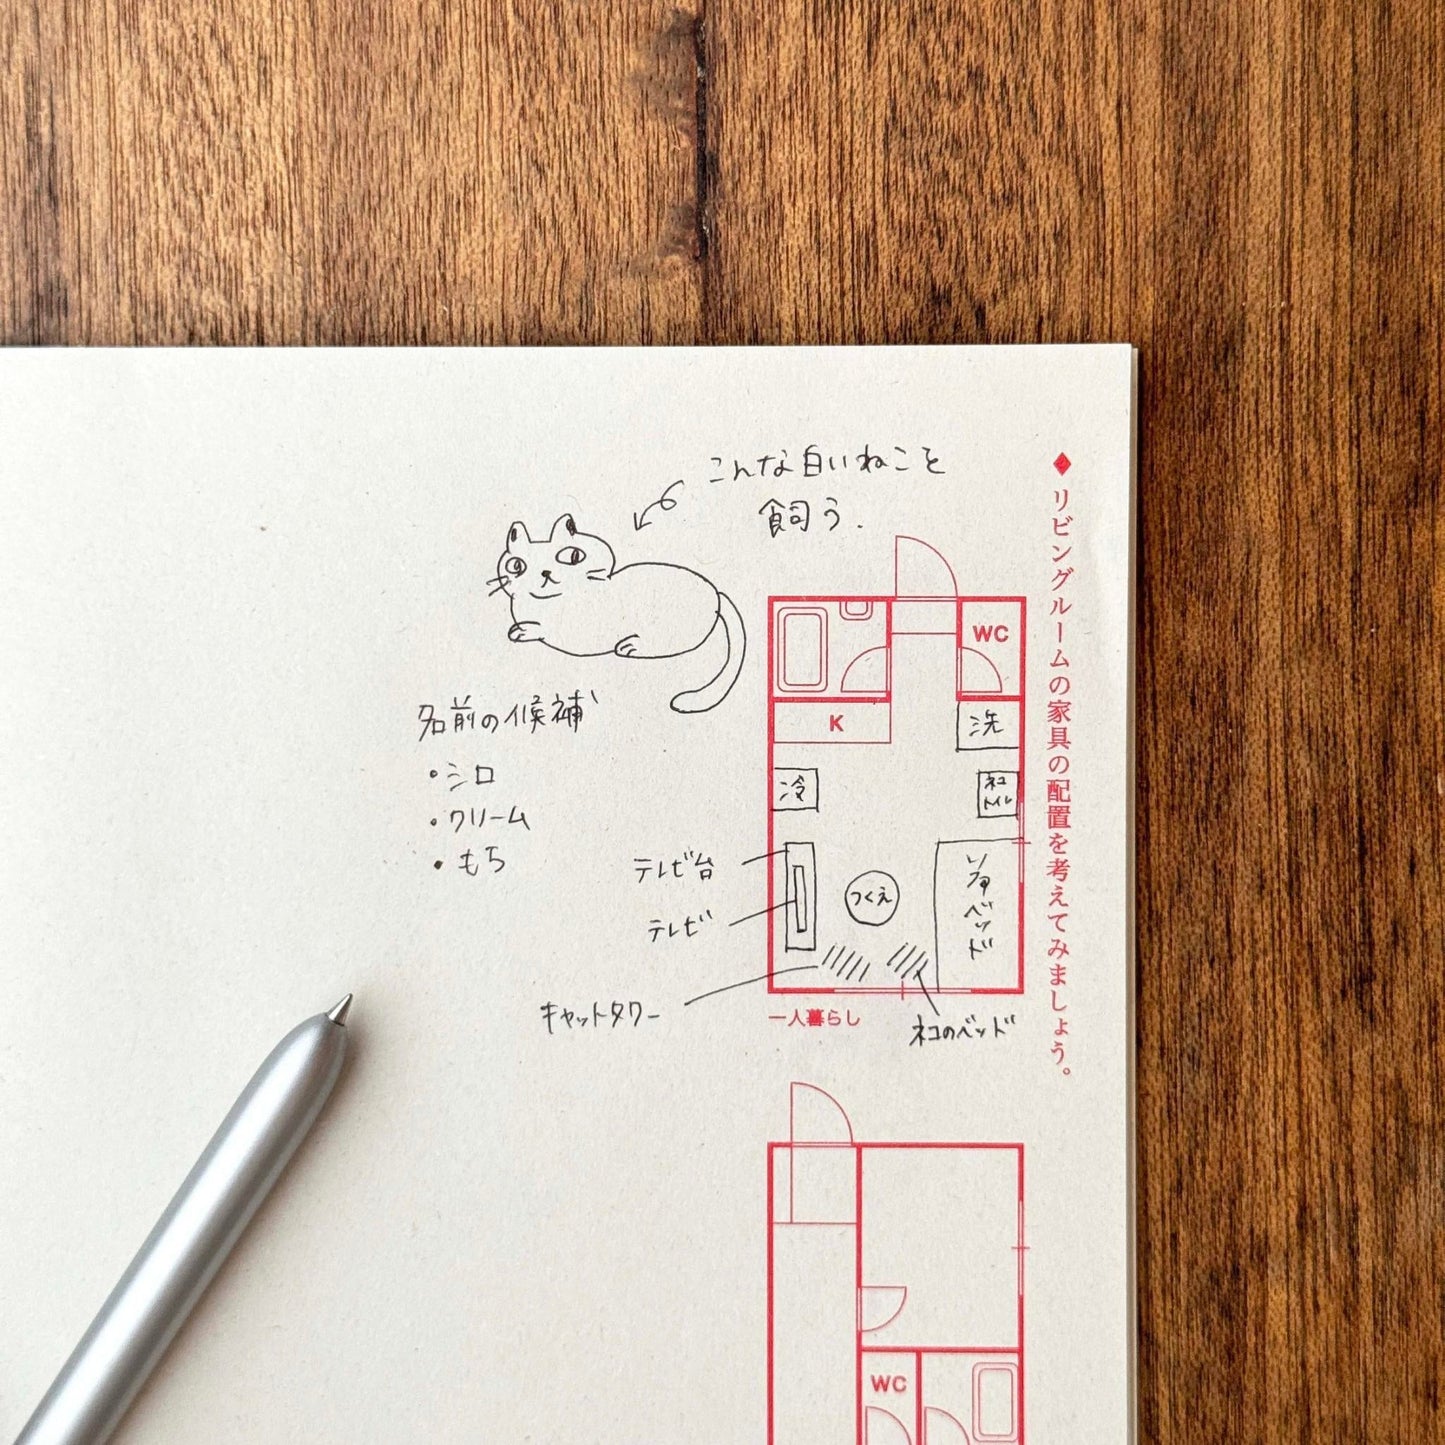 ◆リビングルームの家具の配置を考えてみましょう。
こんな白いねこを
飼う.
名前の候補
・シロ
・クリーム
・もち
WC
K
洗
冷
ネコ
トイレ
テレビ台
テレビ
つくえ
ソファベッド
キャットタワー
一人暮らし
ネコのベッド
WC